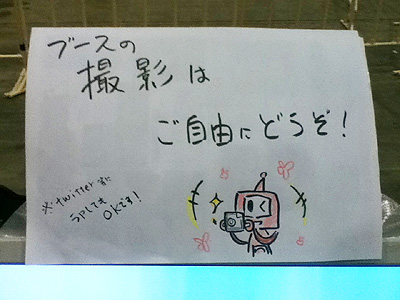 ブースの
撮影は
ご自由にどうぞ！
※twitter等に
うpしても
OKです！